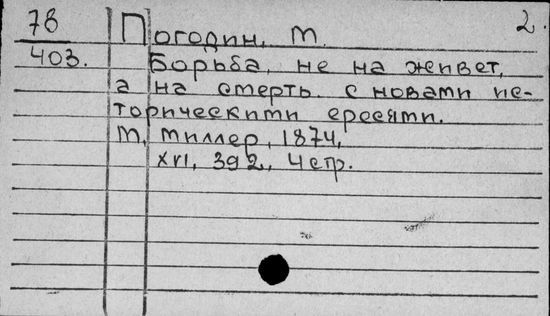 78 Погодин, М. 2.
403. Борьба, не на живет,
а на смерть с новами ис-
торическими ересями.
М, Миллер, 1874,
XVI, 392, 4стр.